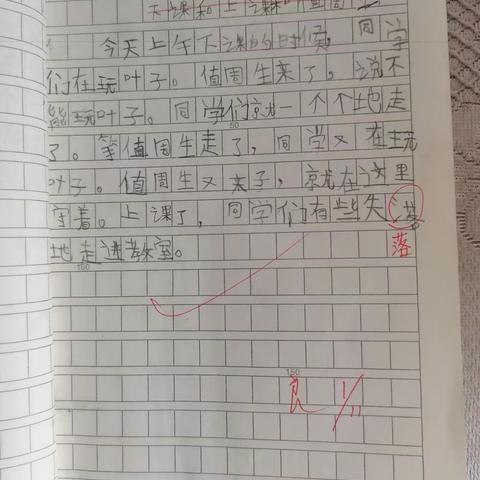 下课和上课时值周
今天上午下课的时候,同学
们在玩叶子。值周生来了,说不
能玩叶子。同学们就一个个地走
50
了。等值周生走了,同学又在玩
叶子。值周生又来了,就在这里
守着。上课了,同学们有些失落
落
地走进教室。
100
150
良 1/11